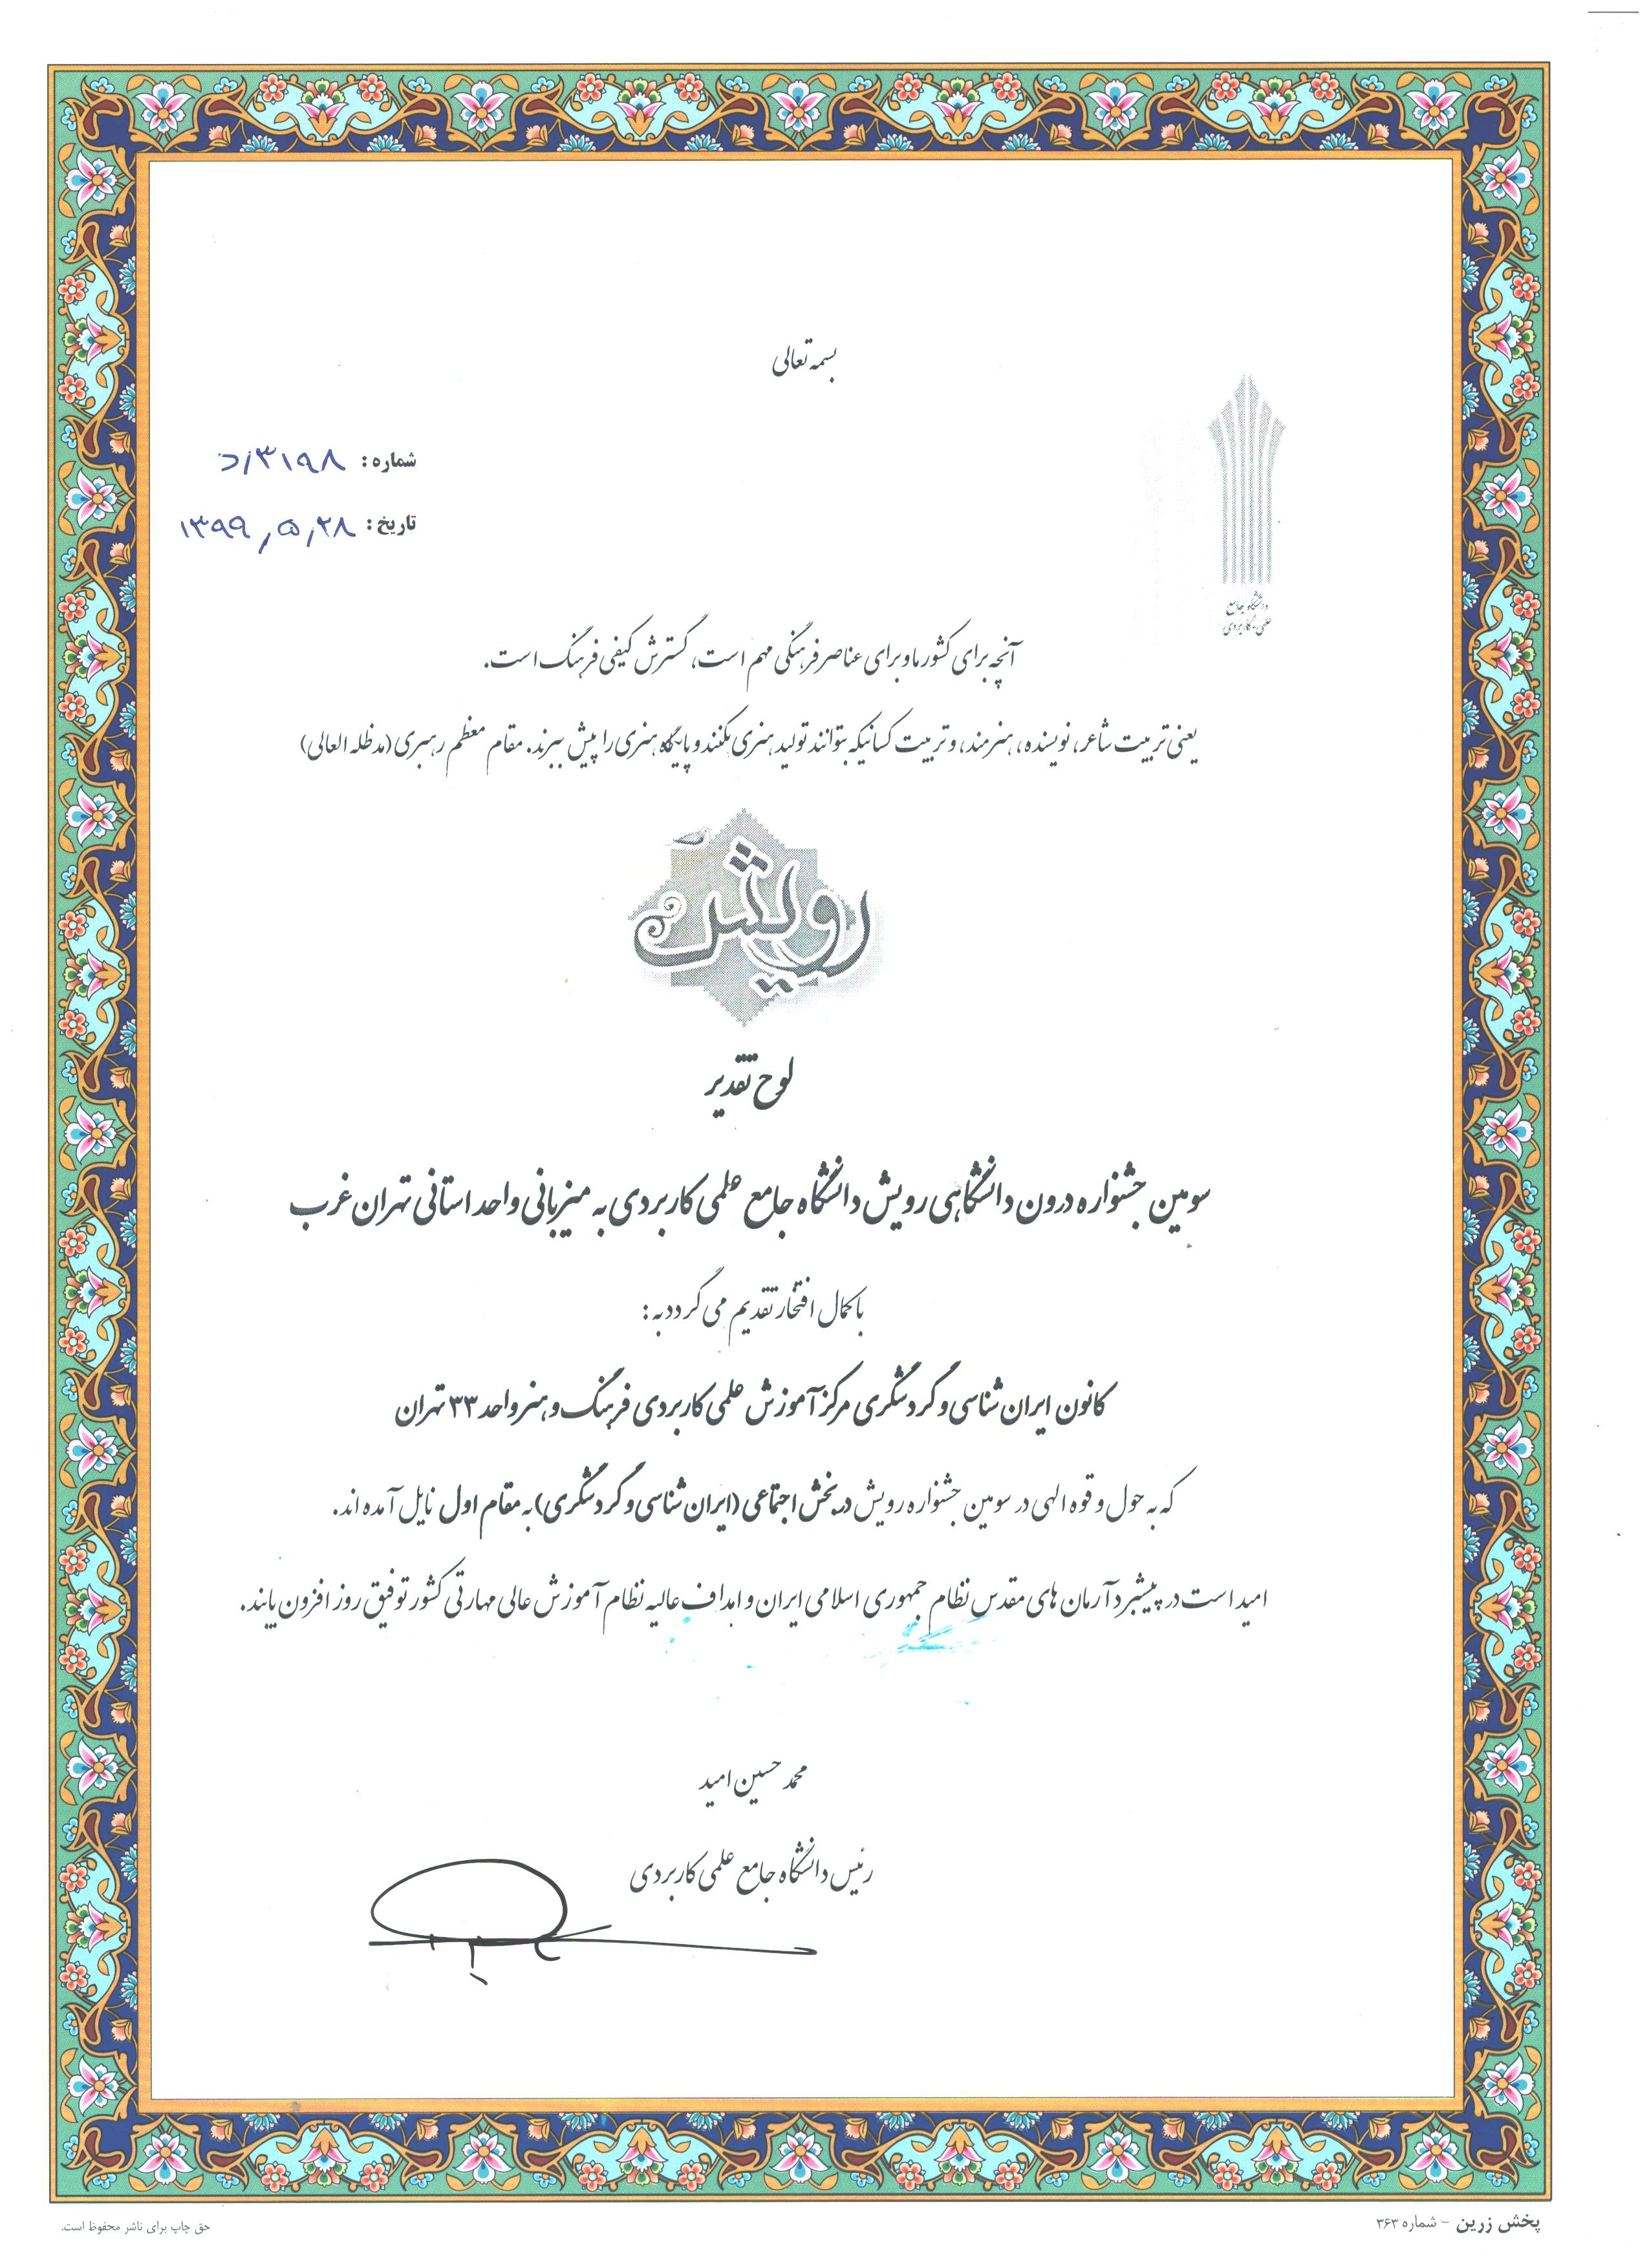 بسمه تعالی
دانشگاه جامع
علمی کاربردی
شماره: ۳۱۹۸/د
تاریخ: ۱۳۹۹/۵/۲۸
آنچه برای کشور ما و برای عناصر فرهنگی مهم است، گسترش کیفی فرهنگ است.
یعنی تربیت شاعر، نویسنده، هنرمند، و تربیت کسانیکه بتوانند تولید هنری بکنند و پایگاه هنری را پیش ببرند. مقام معظم رهبری (مدظله العالی)
رویش
لوح تقدیر
سومین جشنواره درون دانشگاهی رویش دانشگاه جامع علمی کاربردی به میزبانی واحد استانی تهران غرب
با کمال افتخار تقدیم می گردد به:
کانون ایران شناسی و گردشگری مرکز آموزش علمی کاربردی فرهنگ و هنر واحد ۳۳ تهران
که به حول و قوه الهی در سومین جشنواره رویش در بخش اجتماعی (ایران شناسی و گردشگری) به مقام اول نایل آمده اند.
امید است در پیشبرد آرمان های مقدس نظام جمهوری اسلامی ایران و اهداف عالیه نظام آموزش عالی مهارتی کشور توفیق روز افزون یابند.
محمد حسین امید
رئیس دانشگاه جامع علمی کاربردی
پخش زرین - شماره ۳۶۳
حق چاپ برای ناشر محفوظ است.